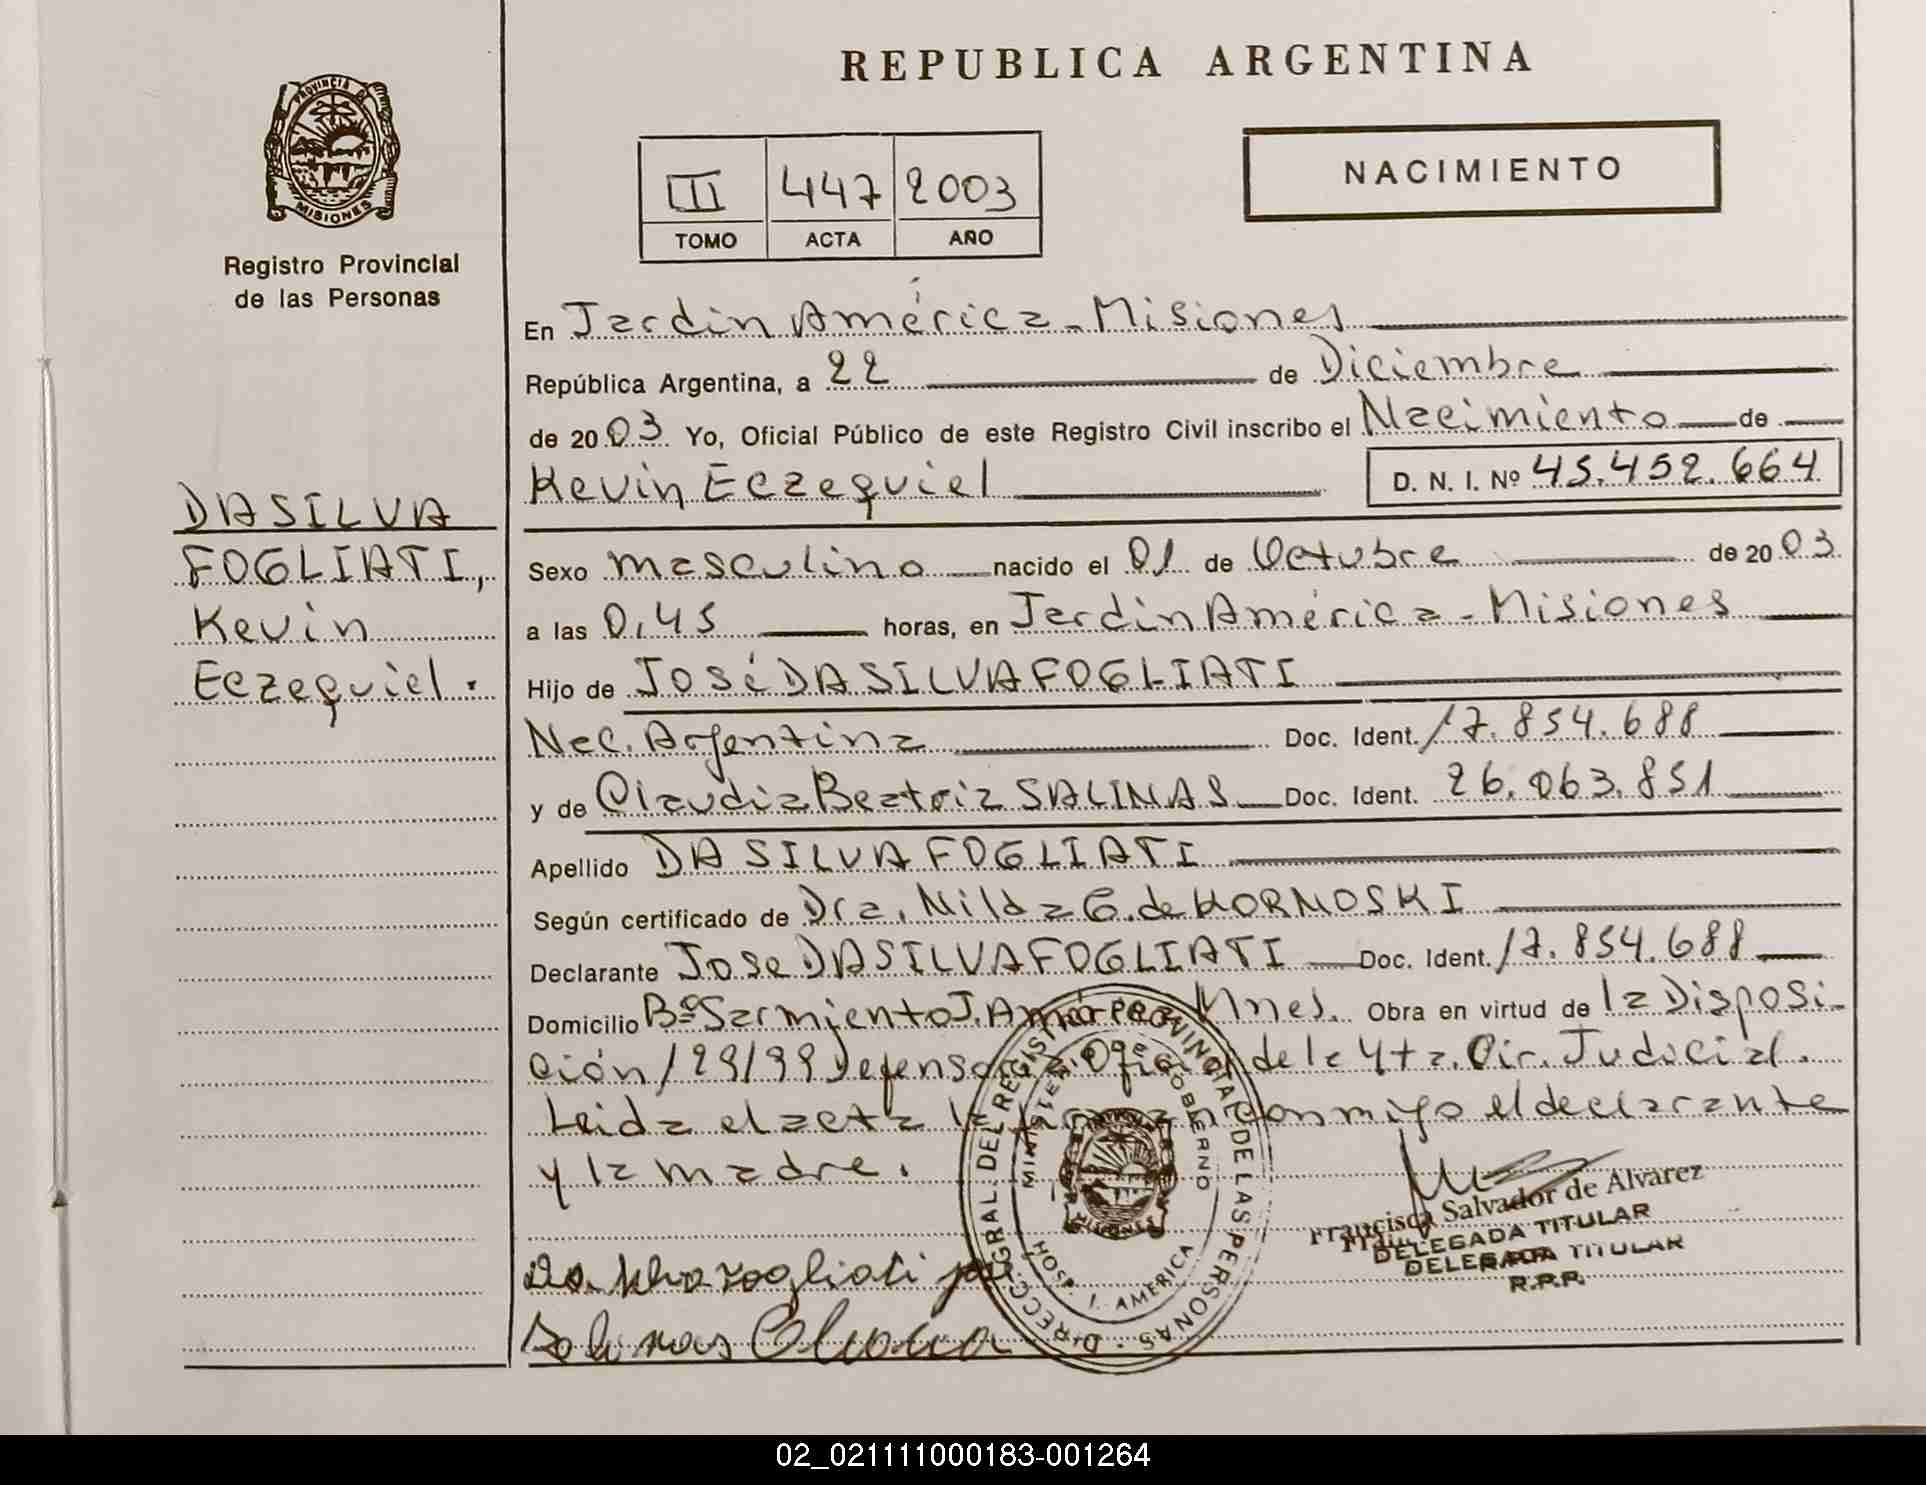 REPUBLICA ARGENTINA
PROVINCIA DE
MISIONES
Registro Provincial
de las Personas
III 447 2003
TOMO ACTA AÑO
NACIMIENTO
En Jardin América - Misiones
República Argentina, a 22 de Diciembre
de 2003 Yo, Oficial Público de este Registro Civil inscribo el Nacimiento de
Kevin Eczequiel D. N. I. Nº 45.452.664
DA SILVA
FOGLIATI,
Kevin
Eczequiel.
Sexo masculino nacido el 01 de Octubre de 2003
a las 0,45 horas, en Jardin América - Misiones
Hijo de José DA SILVA FOGLIATI
Nac. Argentina Doc. Ident. 17.854.688
y de Claudia Beatriz SALINAS Doc. Ident. 26.063.851
Apellido DA SILVA FOGLIATI
Según certificado de Dra. Nilda G. de KORNOSKI
Declarante Jose DA SILVA FOGLIATI Doc. Ident. 17.854.688
Domicilio Bº Sarmiento J. América Mnes. Obra en virtud de la Disposi-
ción /29/99 Defensoría Oficial de la 4ta. Cir. Judicial.
Leida el acta la firman conmigo el declarante
y la madre.
DIRECC. GRAL. DEL REGISTRO PROVINCIAL DE LAS PERSONAS
MINISTERIO DE GOBIERNO
MISIONES
HOSP. J. AMERICA
Francisca Salvador de Alvarez
DELEGADA TITULAR
DELEGADA TITULAR
R.P.P.
Salinas Claudia
02_021111000183-001264